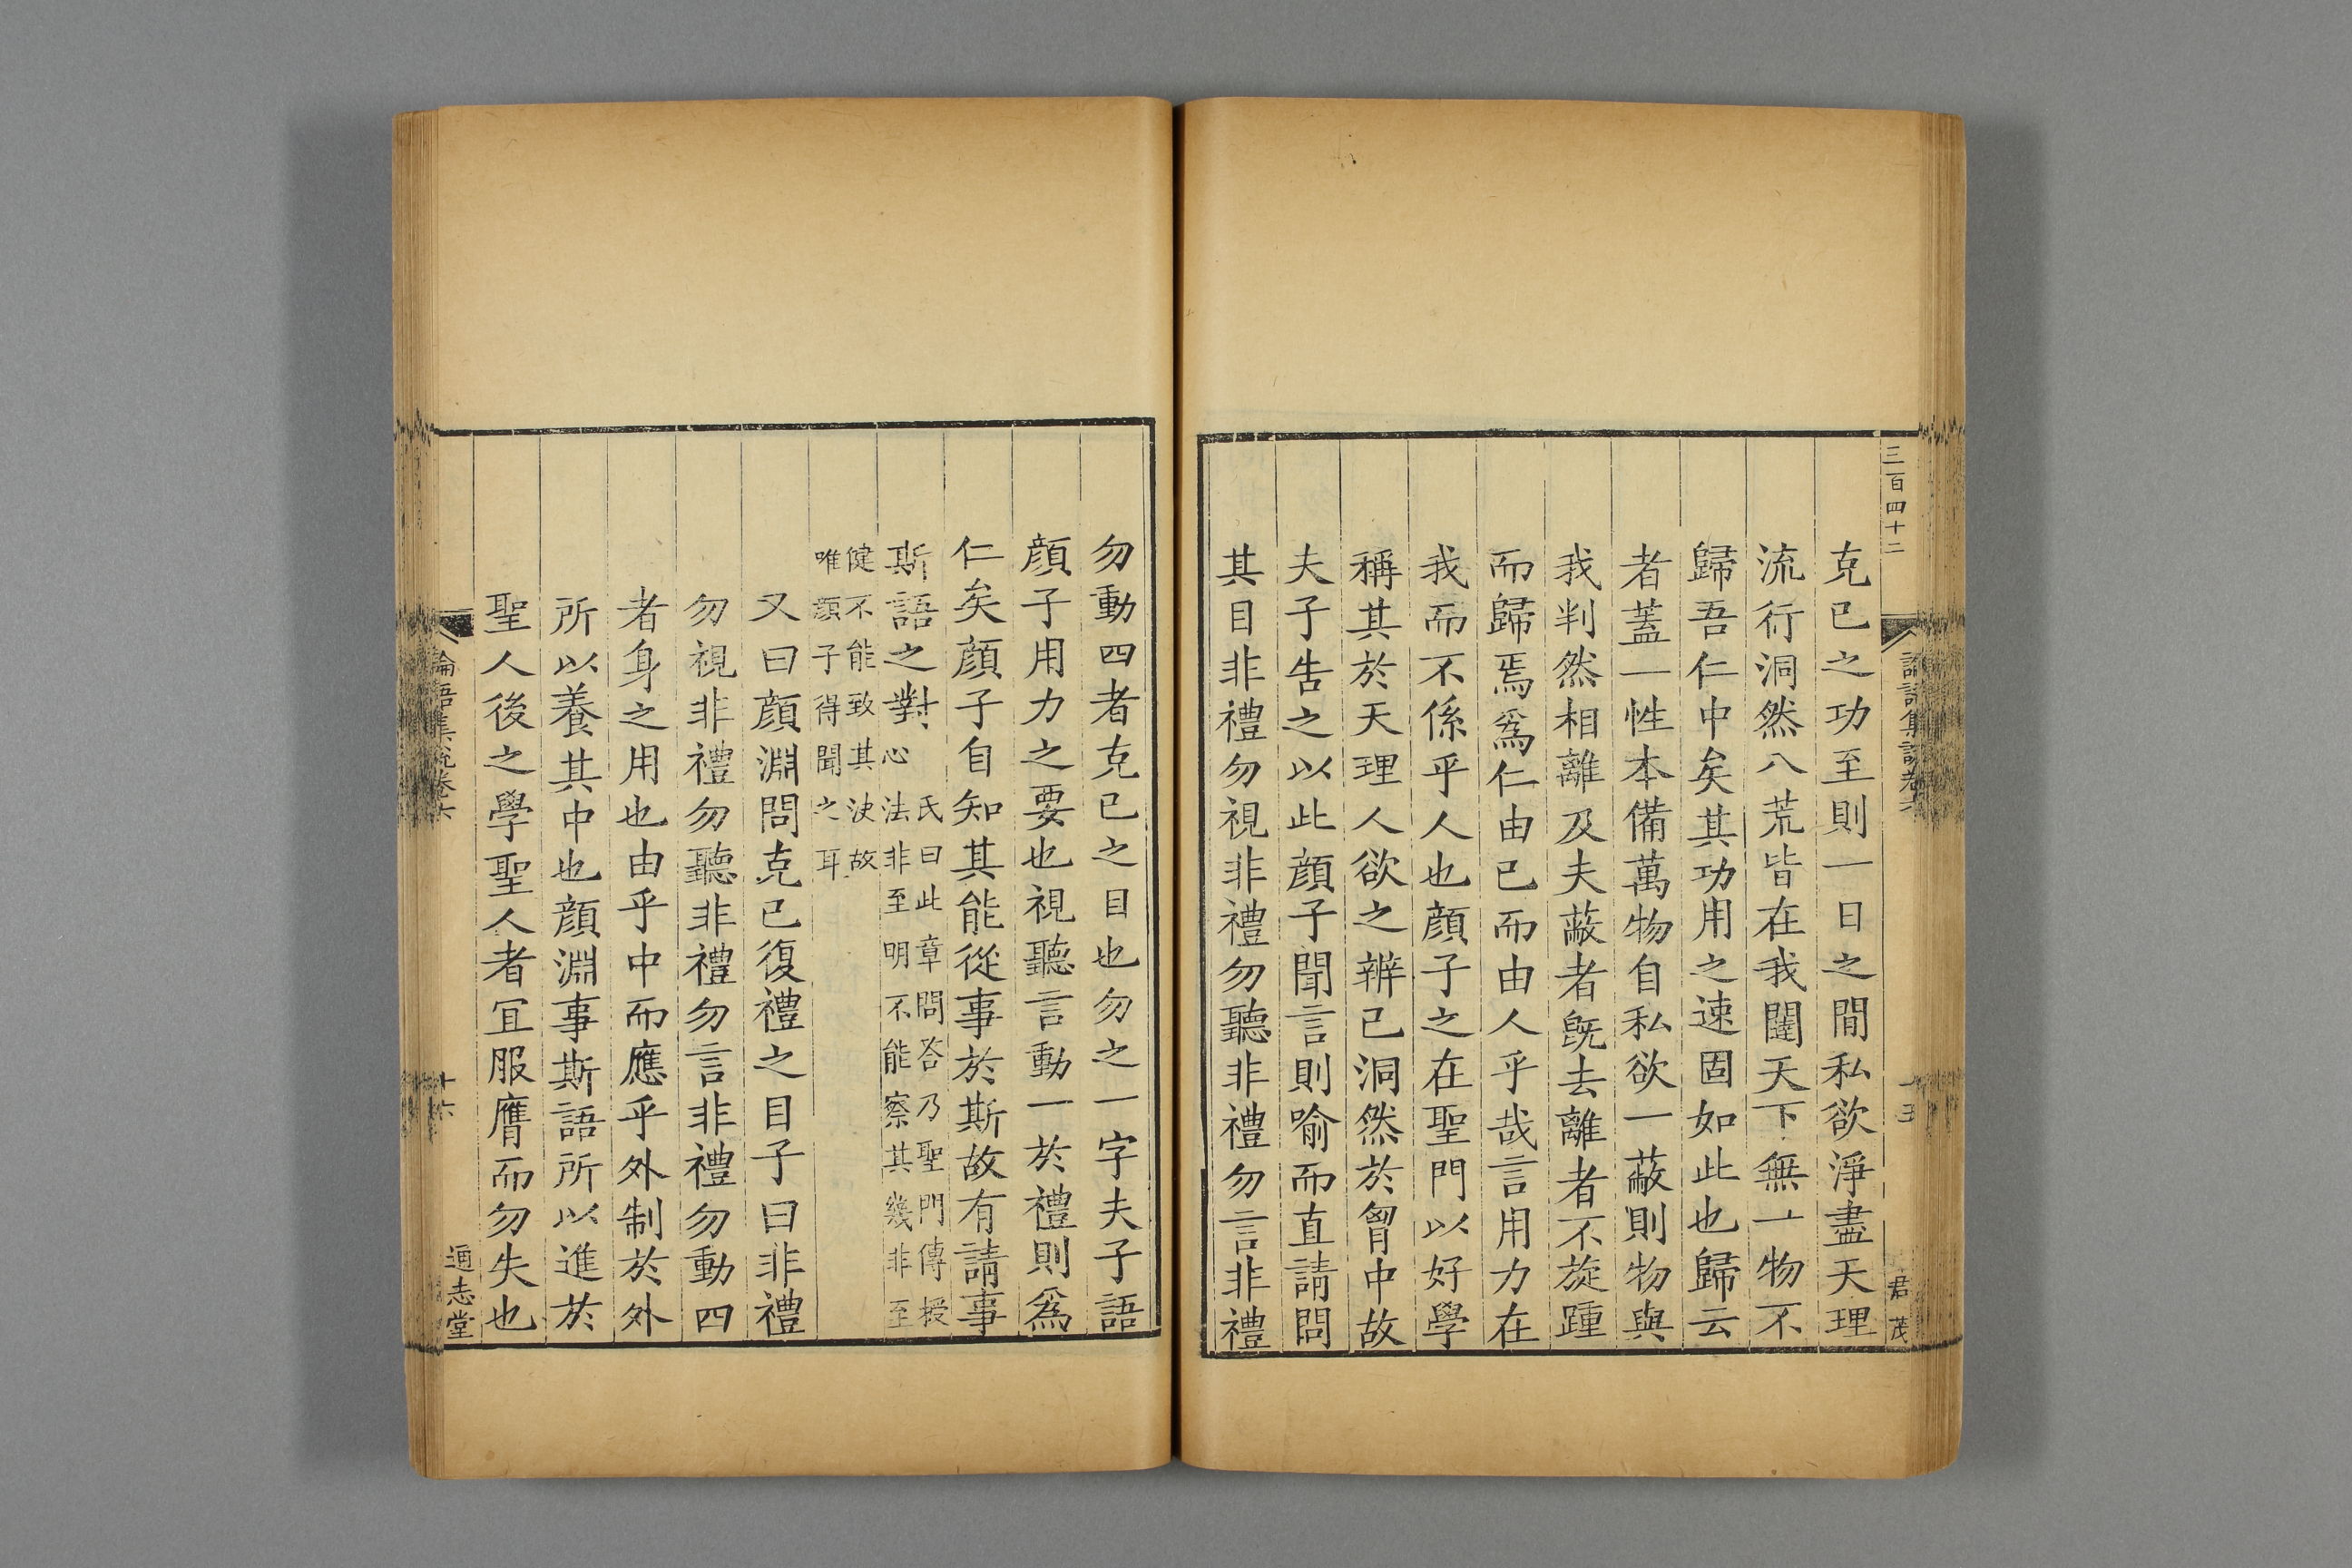 三百四十二
論語集說卷六
十五
君茂
克已之功至則一日之間私欲淨盡天理
流行洞然八荒皆在我闥天下無一物不
歸吾仁中矣其功用之速固如此也歸云
者蓋一性本備萬物自私欲一蔽則物與
我判然相離及夫蔽者旣去離者不旋踵
而歸焉爲仁由已而由人乎哉言用力在
我而不係乎人也顔子之在聖門以好學
稱其於天理人欲之辨已洞然於胷中故
夫子告之以此顔子聞言則喻而直請問
其目非禮勿視非禮勿聽非禮勿言非禮
勿動四者克已之目也勿之一字夫子語
顔子用力之要也視聽言動一於禮則爲
仁矣顔子自知其能從事於斯故有請事
斯語之對
氏曰此章問荅乃聖門傳授
心法非至明不能察其幾非至
健不能致其決故
唯顔子得聞之耳
又曰顔淵問克已復禮之目子曰非禮
勿視非禮勿聽非禮勿言非禮勿動四
者身之用也由乎中而應乎外制於外
所以養其中也顔淵事斯語所以進於
聖人後之學聖人者宜服膺而勿失也
論語集說卷六
十六
通志堂